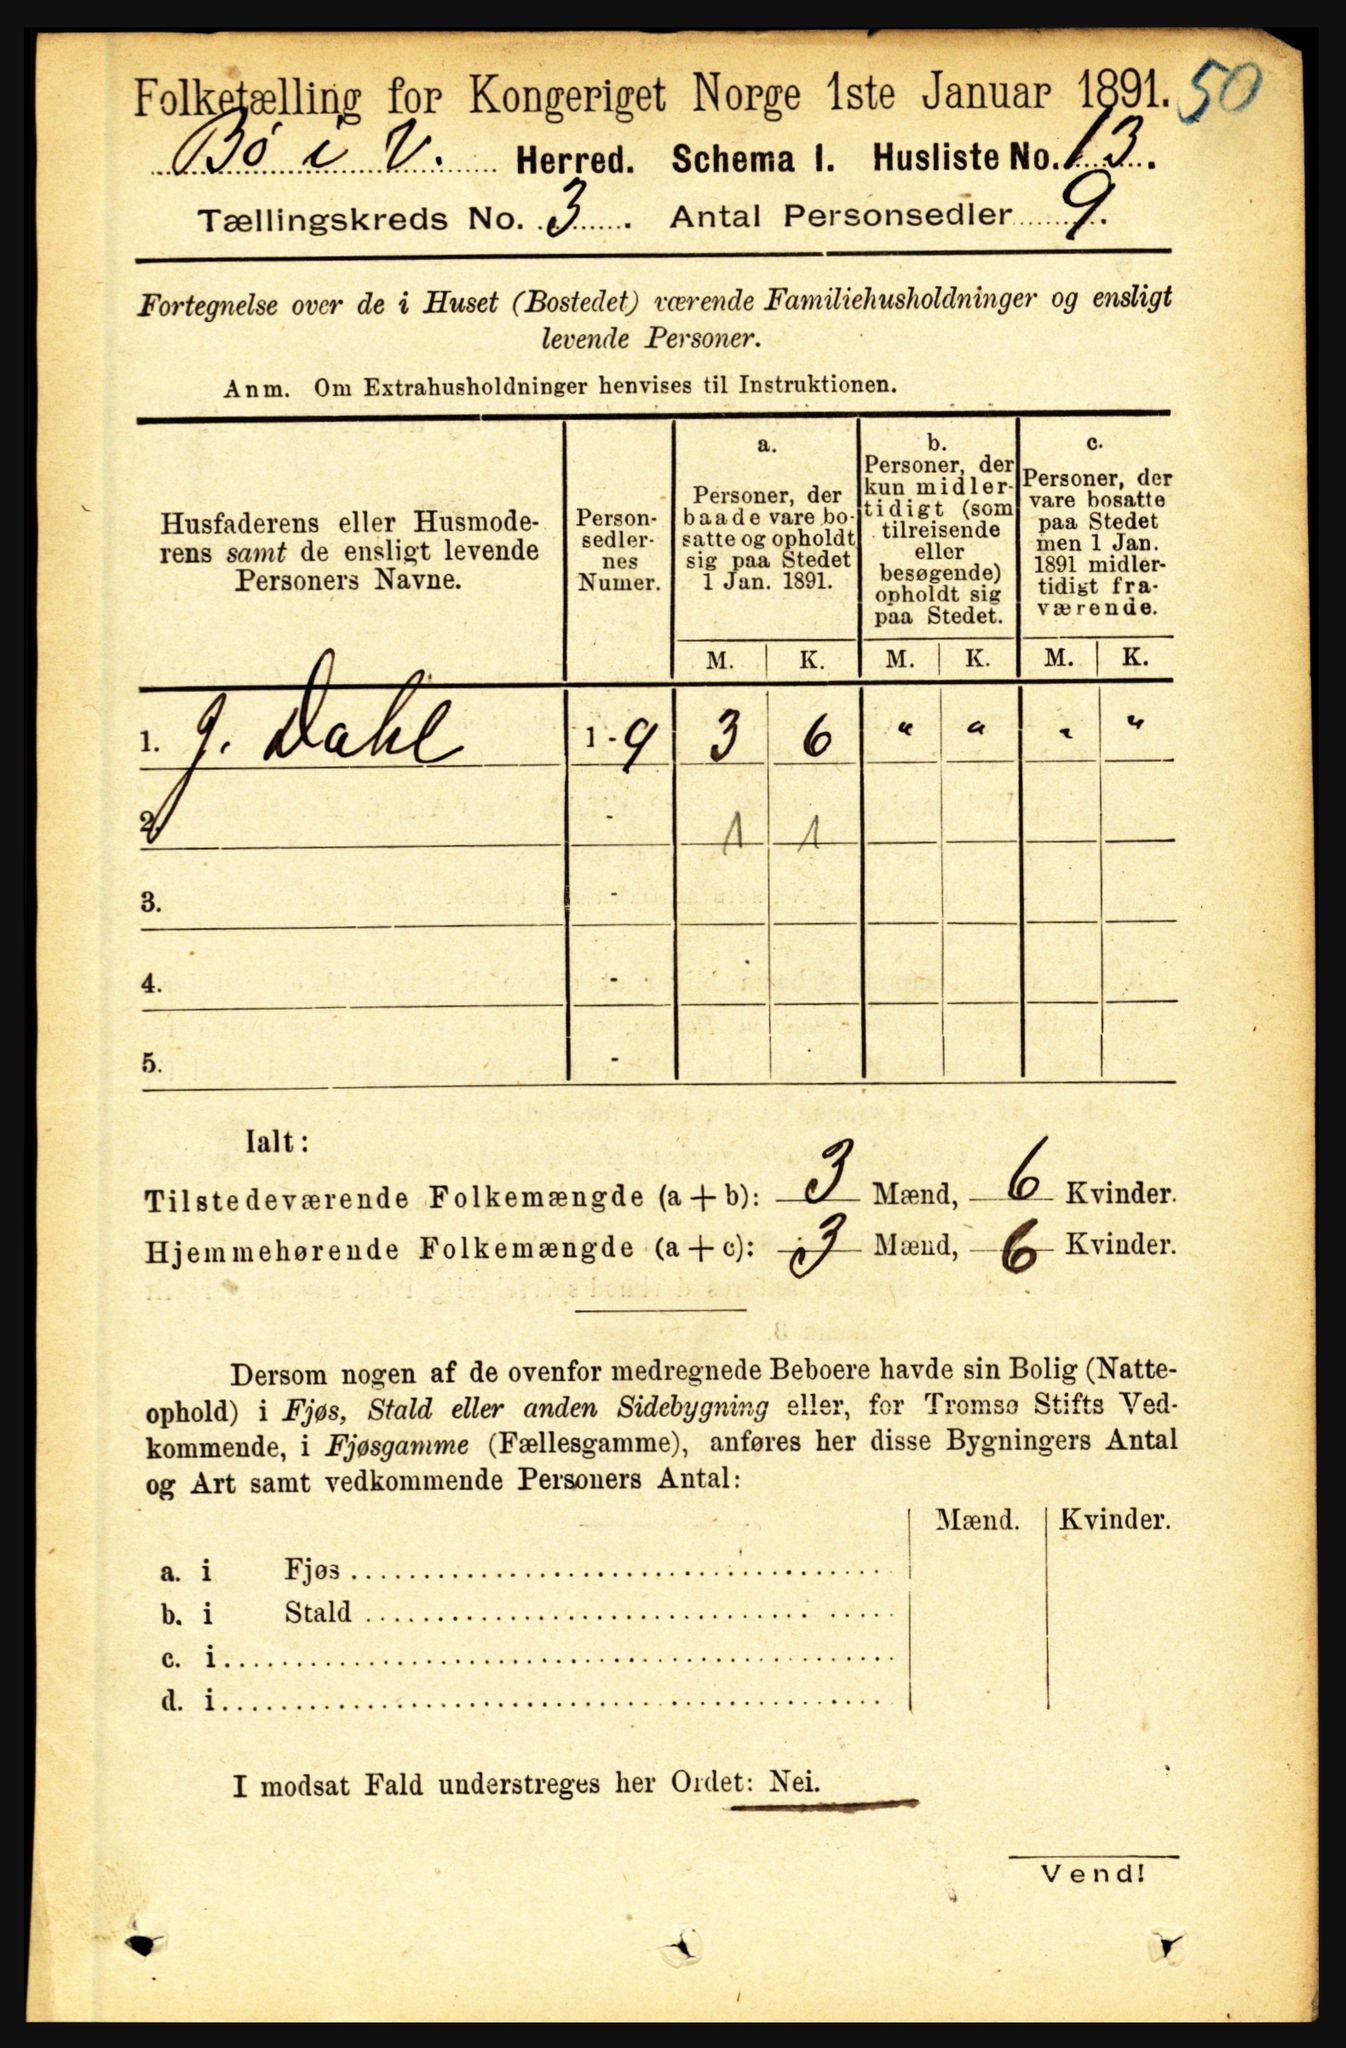 Folketælling for Kongeriget Norge 1ste Januar 1891. 50
Bø i V. Herred. Schema 1. Husliste No. 13.
Tællingskreds No. 3. Antal Personsedler 9.
Fortegnelse over de i Huset (Bostedet) værende Familiehusholdninger og ensligt
levende Personer.
Anm. Om Extrahusholdninger henvises til Instruktionen.
Husfaderens eller Husmode-
rens samt de ensligt levende
Personers Navne.
Person-
sedler-
nes
Numer.
a.
Personer, der
baade vare bo-
satte og opholdt
sig paa Stedet
1 Jan. 1891.
b.
Personer, der
kun midler-
tidigt (som
tilreisende
eller
besøgende)
opholdt sig
paa Stedet.
c.
Personer, der
vare bosatte
paa Stedet
men 1 Jan.
1891 midler-
tidigt fra-
værende.
M. K. M. K. M. K.
1. J. Dahl 1 - 9 3 6 " " " "
2. - 1 1
3. -
4. -
5. -
Ialt:
Tilstedeværende Folkemængde (a + b): 3 Mænd, 6 Kvinder.
Hjemmehørende Folkemængde (a + c): 3 Mænd, 6 Kvinder.
Dersom nogen af de ovenfor medregnede Beboere havde sin Bolig (Natte-
ophold) i Fjøs, Stald eller anden Sidebygning eller, for Tromsø Stifts Ved-
kommende, i Fjøsgamme (Fællesgamme), anføres her disse Bygningers Antal
og Art samt vedkommende Personers Antal:
Mænd. Kvinder.
a. i Fjøs
b. i Stald
c. i
d. i
I modsat Fald understreges her Ordet: Nei.
Vend!